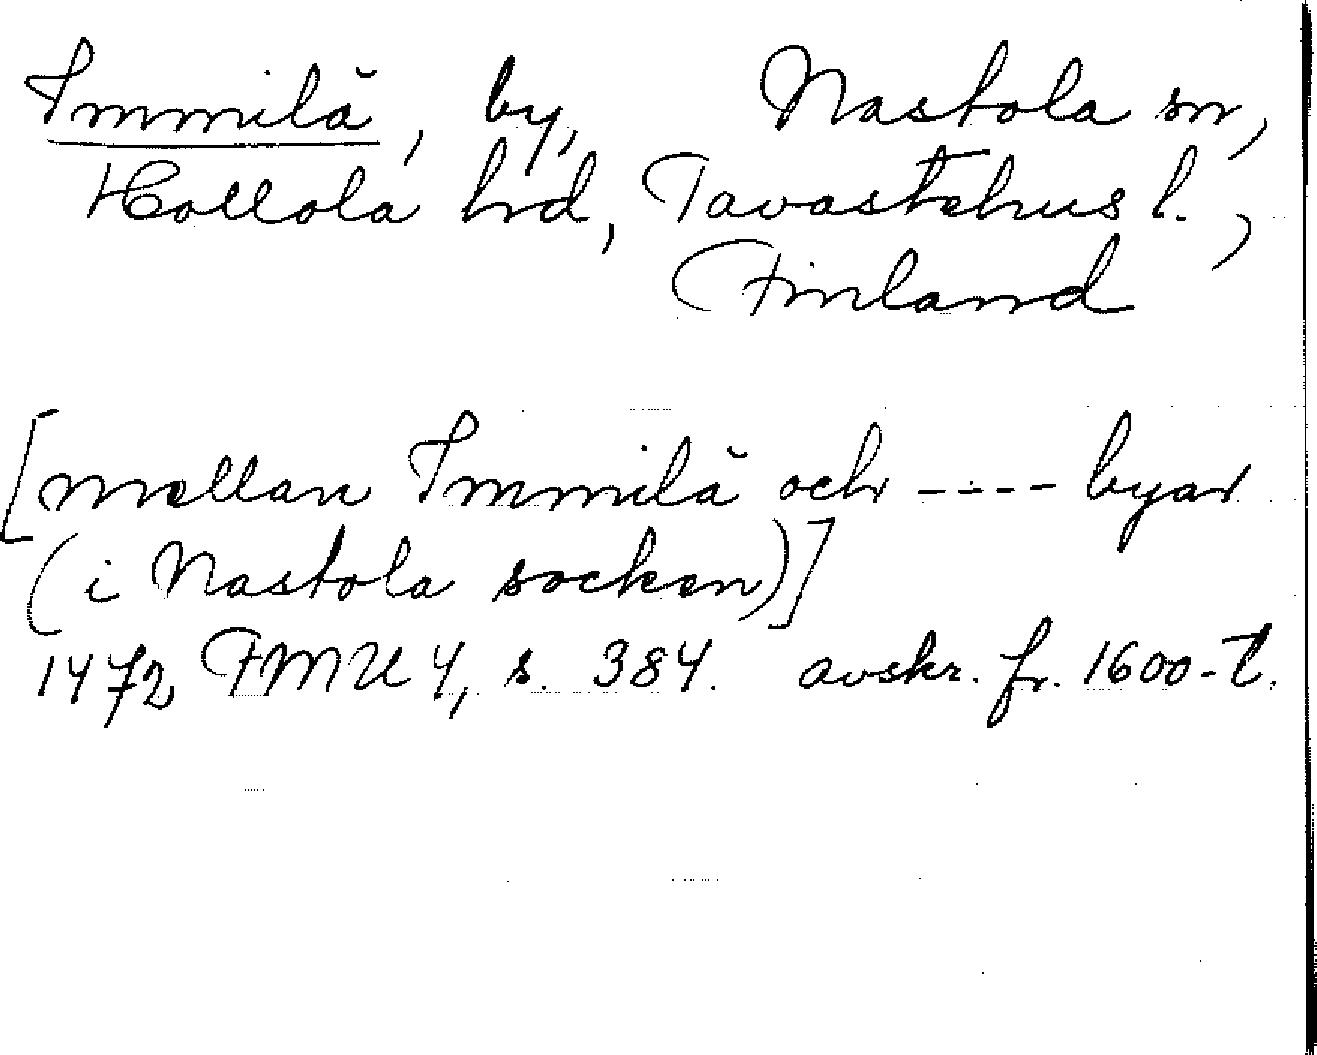 Immilä, by, Nastola sn,
Hollola hd, Tavastehus l.,
Finland
[mellan Immilä och ---- byar
(i Nastola socken)]
1472, FMU 4, s. 384. avskr. fr. 1600-t.